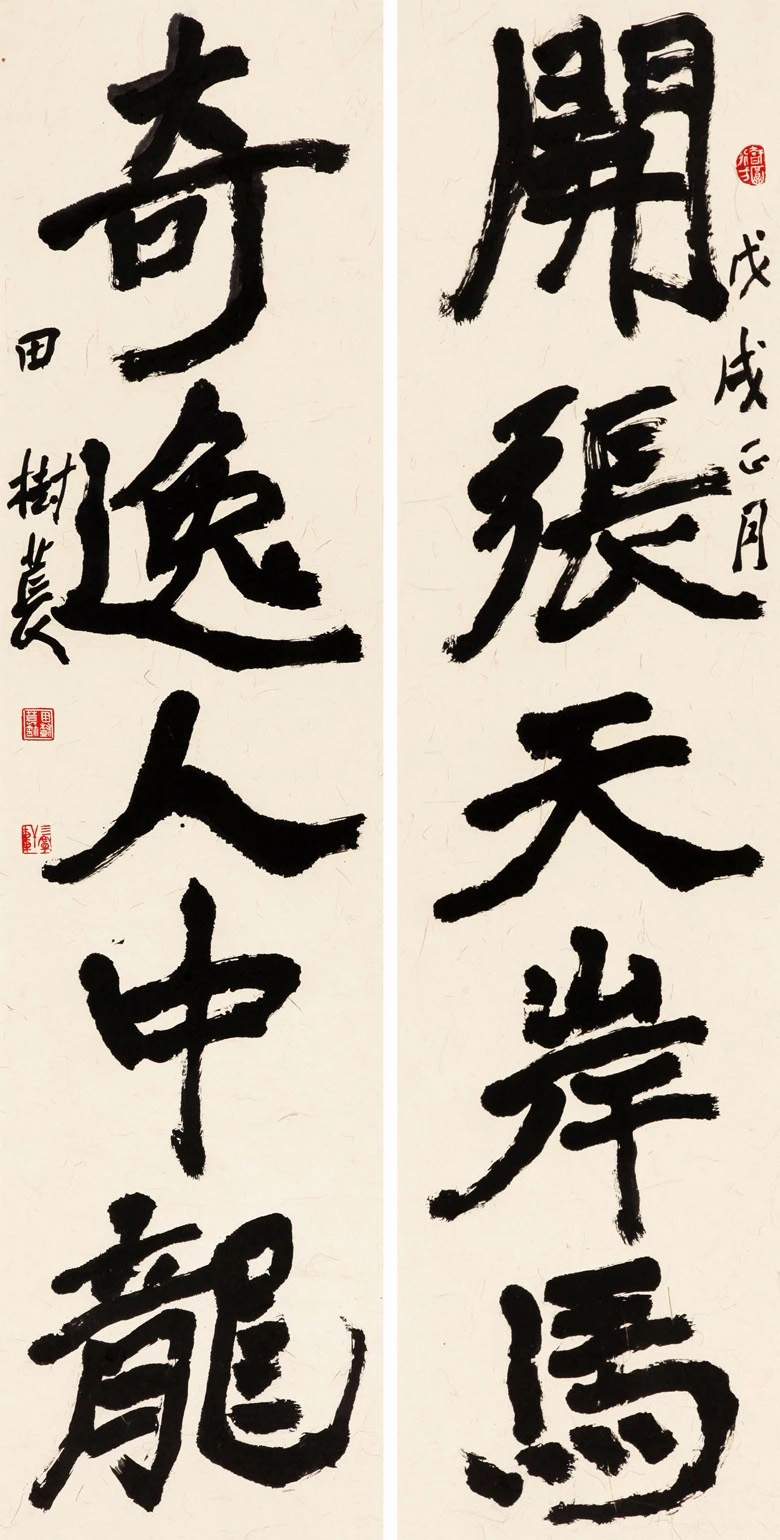 戊戌正月
開張天岸馬
奇逸人中龍
田樹萇